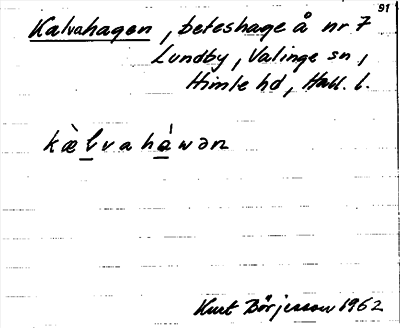 91
Kalvahagen, beteshage å nr 7
Lundby, Valinge sn,
Himle hd, Hall. l.
kæ̀l̲vahá̲wən
Kurt Börjesson 1962